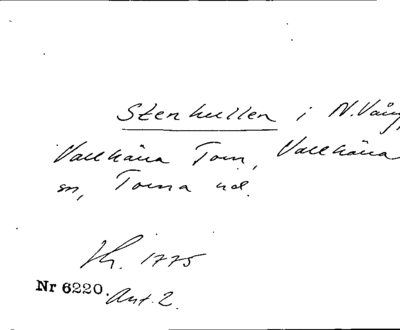 Stenkullen i N. Vång,
Vallkärra Tom, Vallkärra
sn, Torna hd.
Jk. 1775
Nr 6220. Ant. 2.